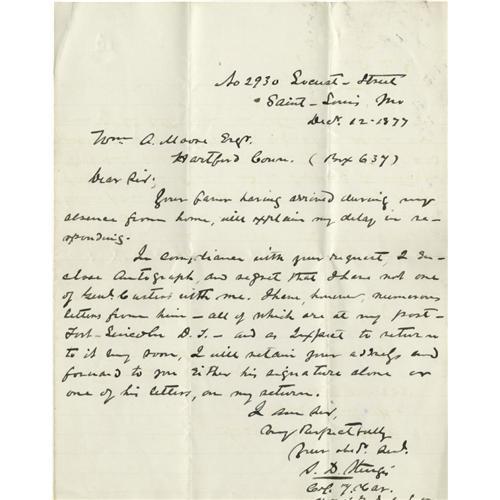 No 2930 Locust-Street
Saint-Louis Mo
Decr. 12-1877
Wm A. Moore Esqr.
Hartford Conn. (Box 637)
Dear Sir;
Your favor having arrived during my
absence from home, will explain my delay in re-
sponding.
In compliance with your request, I en-
close autograph, and regret that I have not one
of Genl. Custers with me. I have, however, numerous
letters from him - all of which are at my post-
Fort-Lincoln D. T. - and as I expect to return
to it very soon, I will retain your address and
forward to you either his signature alone or
one of his letters, on my return.
I am Sir,
Very Respectfully
Your obdt. Servt.
S. D. Sturgis
Col. 7. Cav.